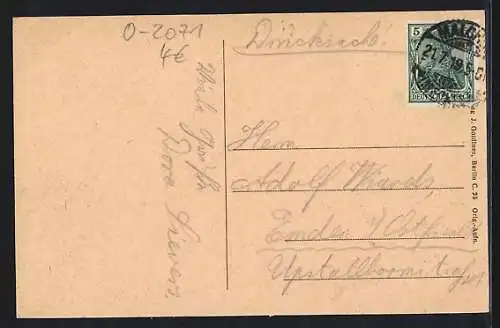 O-2071
4€
Drucksache!
5
MALCH
21.7.19.5
Viele Grüße
Dore Sievers.
Herrn
Adolf
Emden i/Ostfriesl
Upstallboomstraße
J. Goldiner, Berlin C. 25 Orig.-Aufn.